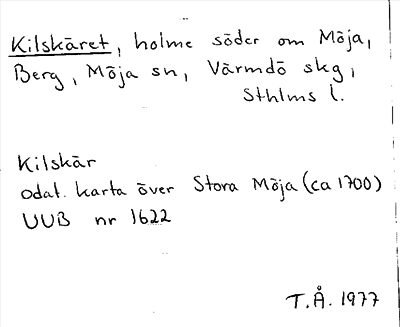 Kilskäret, holme söder om Möja,
Berg, Möja sn, Värmdö skg,
Sthlms l.
Kilskär
odat. karta över Stora Möja (ca 1700)
UUB nr 1622
T.Å. 1977